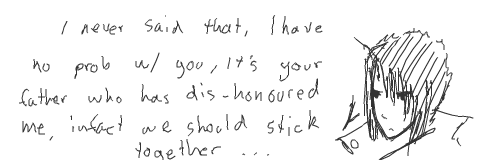 I never said that, I have
no prob w/ you, It's your
father who has dis-honoured
me, infact we should stick
together ...